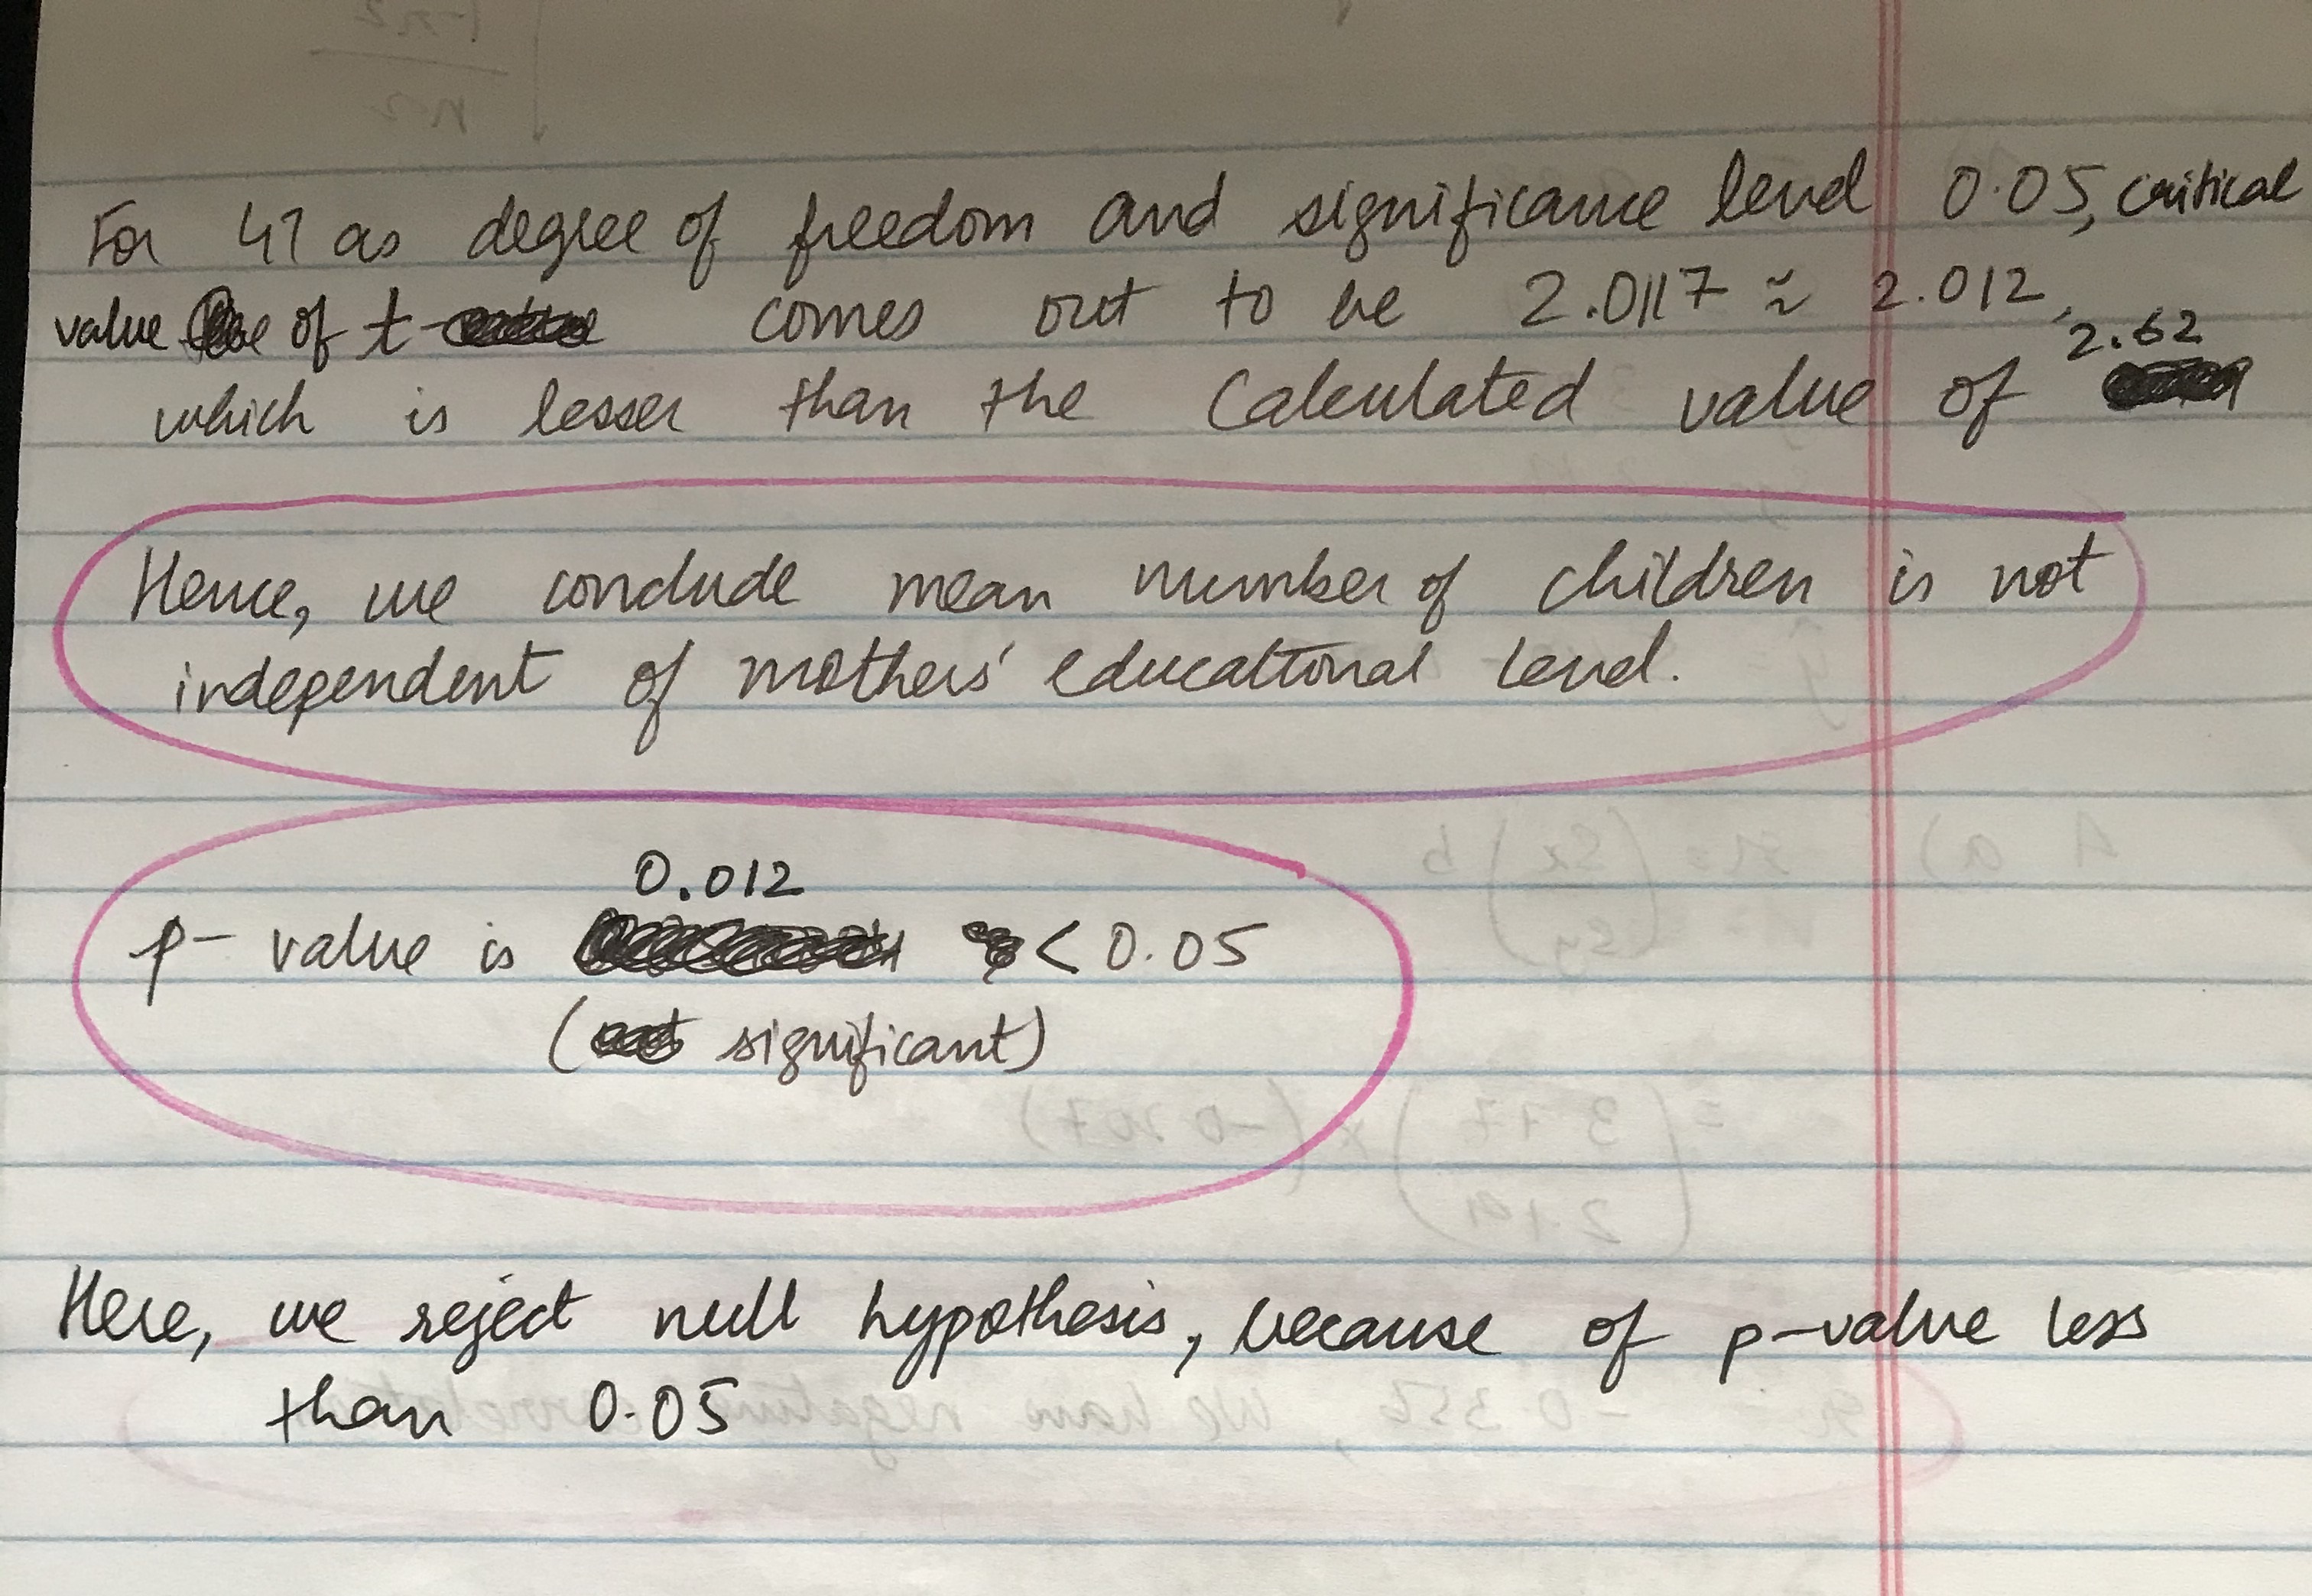 For 47 as degree of freedom and significance level 0.05, critical
value of t comes out to be 2.0117 ≈ 2.012,
which is lesser than the Calculated value of 2.62
Hence, we conclude mean number of children is not
independent of mothers' educational level.
0.012
p-value is < 0.05
(significant)
Here, we reject null hypothesis, because of p-value less
than 0.05